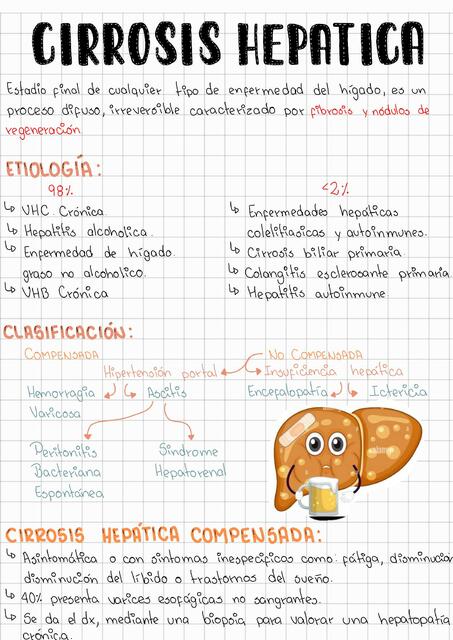 CIRROSIS HEPATICA
Estadio final de cualquier tipo de enfermedad del hígado, es un
proceso difuso, irreversible caracterizado por fibrosis y nódulos de
regeneración.
ETIOLOGÍA:
98% <2%
↳ VHC Crónica
↳ Hepatitis alcoholica.
↳ Enfermedad de hígado
graso no alcoholico.
↳ VHB Crónica
↳ Enfermedades hepáticas
colelitiasicas y autoinmunes.
↳ Cirrosis biliar primaria.
↳ Colangitis esclerosante primaria.
↳ Hepatitis autoinmune
CLASIFICACIÓN:
COMPENSADA NO COMPENSADA
Hipertensión portal Insuficiencia hepática
Hemorragia Ascitis Encefalopatía Ictericia
Varicosa
Peritonitis Síndrome
Bacteriana Hepatorenal
Espontánea
CIRROSIS HEPÁTICA COMPENSADA:
↳ Asintomática o con sintomas inespecíficos como: fátiga, disminución
disminución del líbido o trastornos del sueño.
↳ 40% presenta varices esofágicas no sangrantes.
↳ Se da el dx, mediante una biopsia para valorar una hepatopatía
crónica.